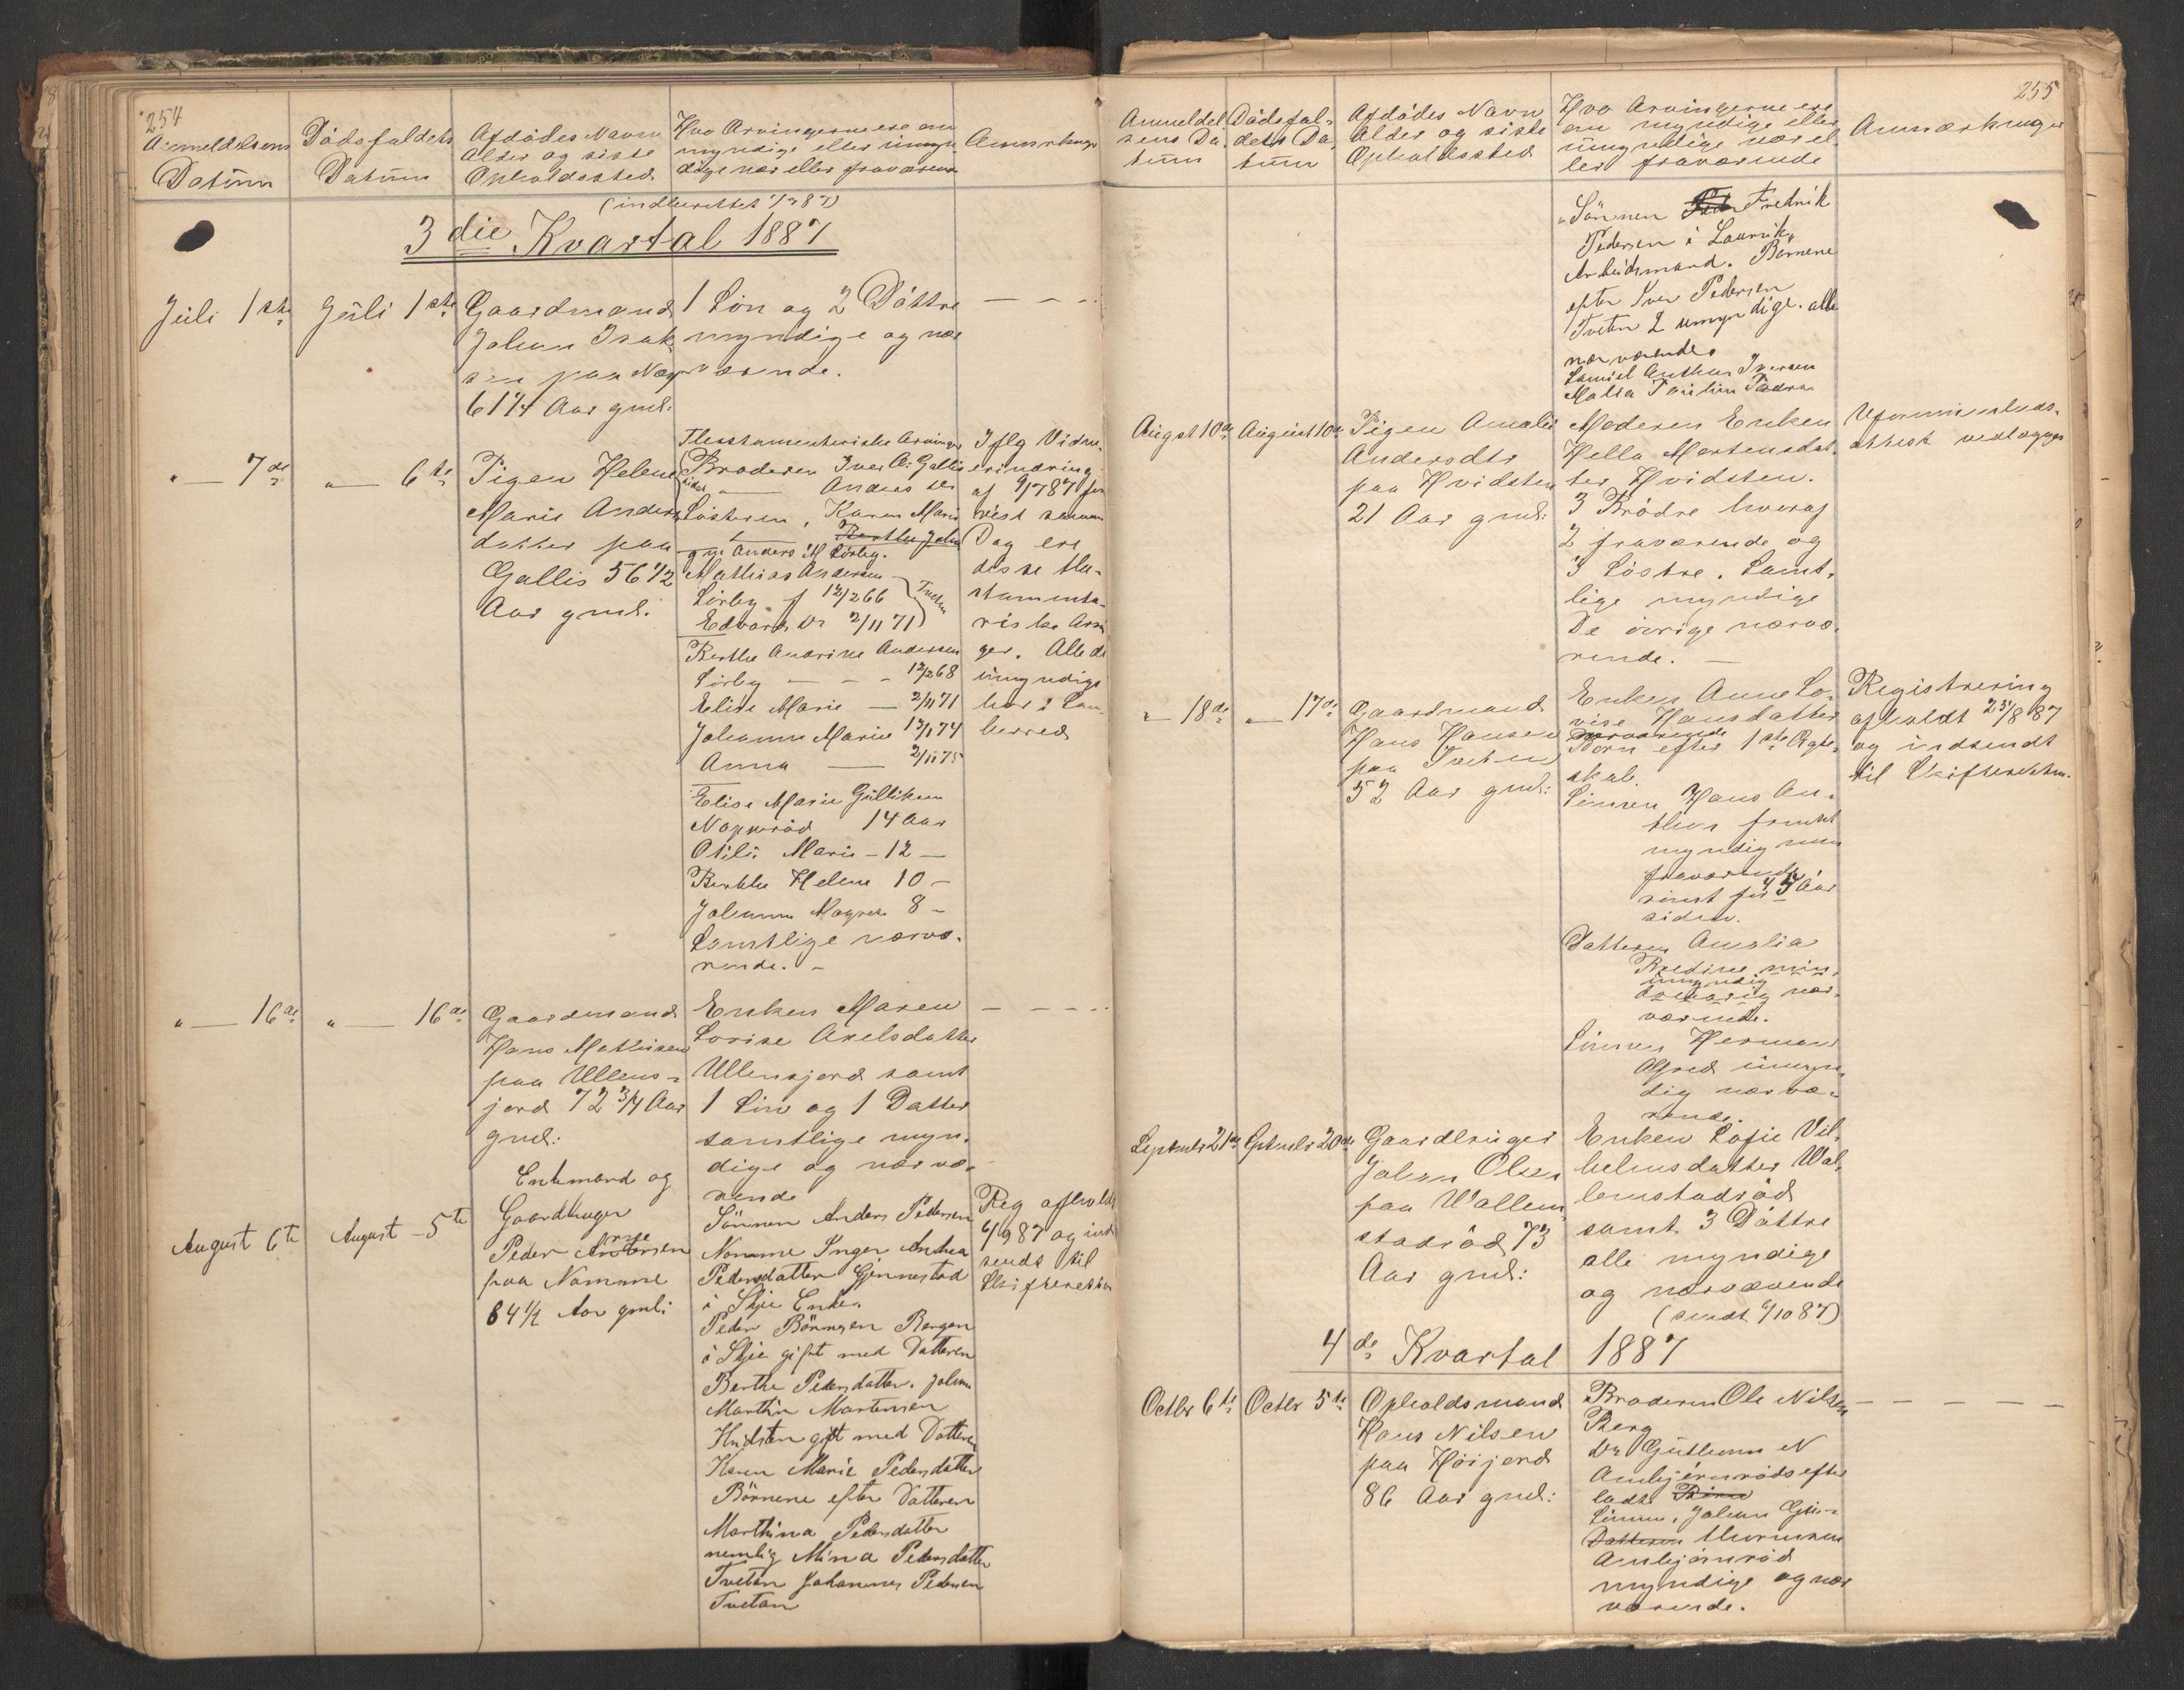 254
Anmeldelsens
Datum
Dödsfaldets
Datum
Afdödes Navn
Alder og sidste
Opholdssted
Hvo Arvingerne ere om
myndige eller umyn
dige nær eller fraværende
(indberettet
3die Kvartal 1887
Juli 1ste
Juli 1ste
Gaardmand
Johan Isak
sen paa
61 1/4 Aar gml:
1 Sön og 2 Döttre
myndige og nær
værende.
" — 7de
" — 6te
Pigen Helene
Marie Anders
datter paa
Gallis 56 1/2
Aar gml.
Thestamenteriske Arvinger
Broderen Iver A. Gallis
Anders
Sösteren, Karen Marie
Berthe Joha
gm Anders M Sörby.
Mathias Andersen
Sörby f 12/2 66
Edvard Do 2/11 71
Tveten
Berthe Andrine Andersen
Sörby — — - 12/2 68
Elise Marie — 2/11 71
Johanne Marie 13/1 74
Anna — 2/11 75
Elise Marie Gulliksen
Napperöd 14 Aar
Otilie Marie - 12 —
Berthe Helene 10 —
Johanne Magrete 8 —
Samtlige nærvæ-
rende. —
Iflg Vidne
erindring
af 9/7 87 fra
samme
Dag ere
disse the-
stamenta-
riske Arvin
ger. Alle de
umyndige
her i Lau-
herred
" — 16de
" — 16de
Gaardmand
Hans Mathisen
paa Ullens-
jord 72 3/4 Aar
gml:
Enken Maren
Lovise Axelsdatter
Ullensjord samt
1 Sön og 1 Datter
samtlige myn-
dige og nærvæ-
rende
August 6te
August - 5te
Enkemand og
Gaardbruger
Peder Andersen
paa Nomme
84 1/2 Aar gml:
Sönnen Anders Pedersen
Nomme Inger Andrea
Pedersdatter Gjennestad
i Skjee Enke.
Peder Börresen Bergan
i Skjee gift med Datteren
Berthe Pedersdatter. Johan
Marthin Martensen
Hvidsten gift med Datteren
Karen Marie Pedersdatter
Börnene efter Datteren
Marthina Pedersdatter
nemlig Mina Pedersdatter
Tvetan Johannes Pedersen
Tvetan
Reg afholdt
6/9 87 og ind
sendt til
Skifteretten
255
Anmeldel
sens Da-
tum
Dödsfal-
dets Da-
tum
Afdödes Navn
Alder og sidste
Opholdssted
Hvo Arvingerne ere
om myndige eller
umyndige nær el-
ler fraværende
Anmærkninger
Sönnen Fredrik
Pedersen i Laurvik,
Arbeidsmand. Börnene
efter Iver Pedersen
Tvetan 2 umyndige. alle
nærværende
Samuel Anthon Iversen
August 10de
August 10de
Pigen Amalie
Andersdtr
paa Hvidsten
21 Aar gml:
Moderen Enken
Hella Mortensdat-
ter Hvidsten.
3 Brödre hvoraf
2 fraværende og
3 Söstre. Samt-
lige myndige
De övrige nærvæ-
rende. —
Uformuenheds-
attest vedlægges
" — 18de
" — 17de
Gaardmand
Hans Hansen
paa Tveten
52 Aar gml:
Enken Anne Lo-
vise Hansdatter
nærværende
Börn efter 1ste Ægte-
skab.
Sönnen Hans An-
thon
myndig men
fraværende
reist for 4 Aar
siden.
Datteren Amalia
umyndig
nær-
værende.
Sönnen Herman
Alfred umyn-
dig nærvæ-
rende.
Registrering
afholdt 23/8 87
og indsendt
til Skifteretten.
Septmbr 21de
Sptmbr 20de
Gaardbruger
Johan Olsen
paa Wallem-
stadröd 73
Aar gml:
Enken Sofie Vil-
helmsdatter Wal-
lemstadröd
samt 3 Döttre
alle myndige
og nærværende
(sendt 1/10 87)
4de Kvartal 1887
Octbr 6te
Octbr 5te
Opholdsmand
Hans Nilsen
paa Höijord
86 Aar gml:
Broderen Ole Nilsen
Berg
Do Guthorm N
Ambjörnröds efter
ladte Börn
Sönnen, Johan Gu-
Datteren thormsen
Ambjörnröd
myndige og nær
værende.